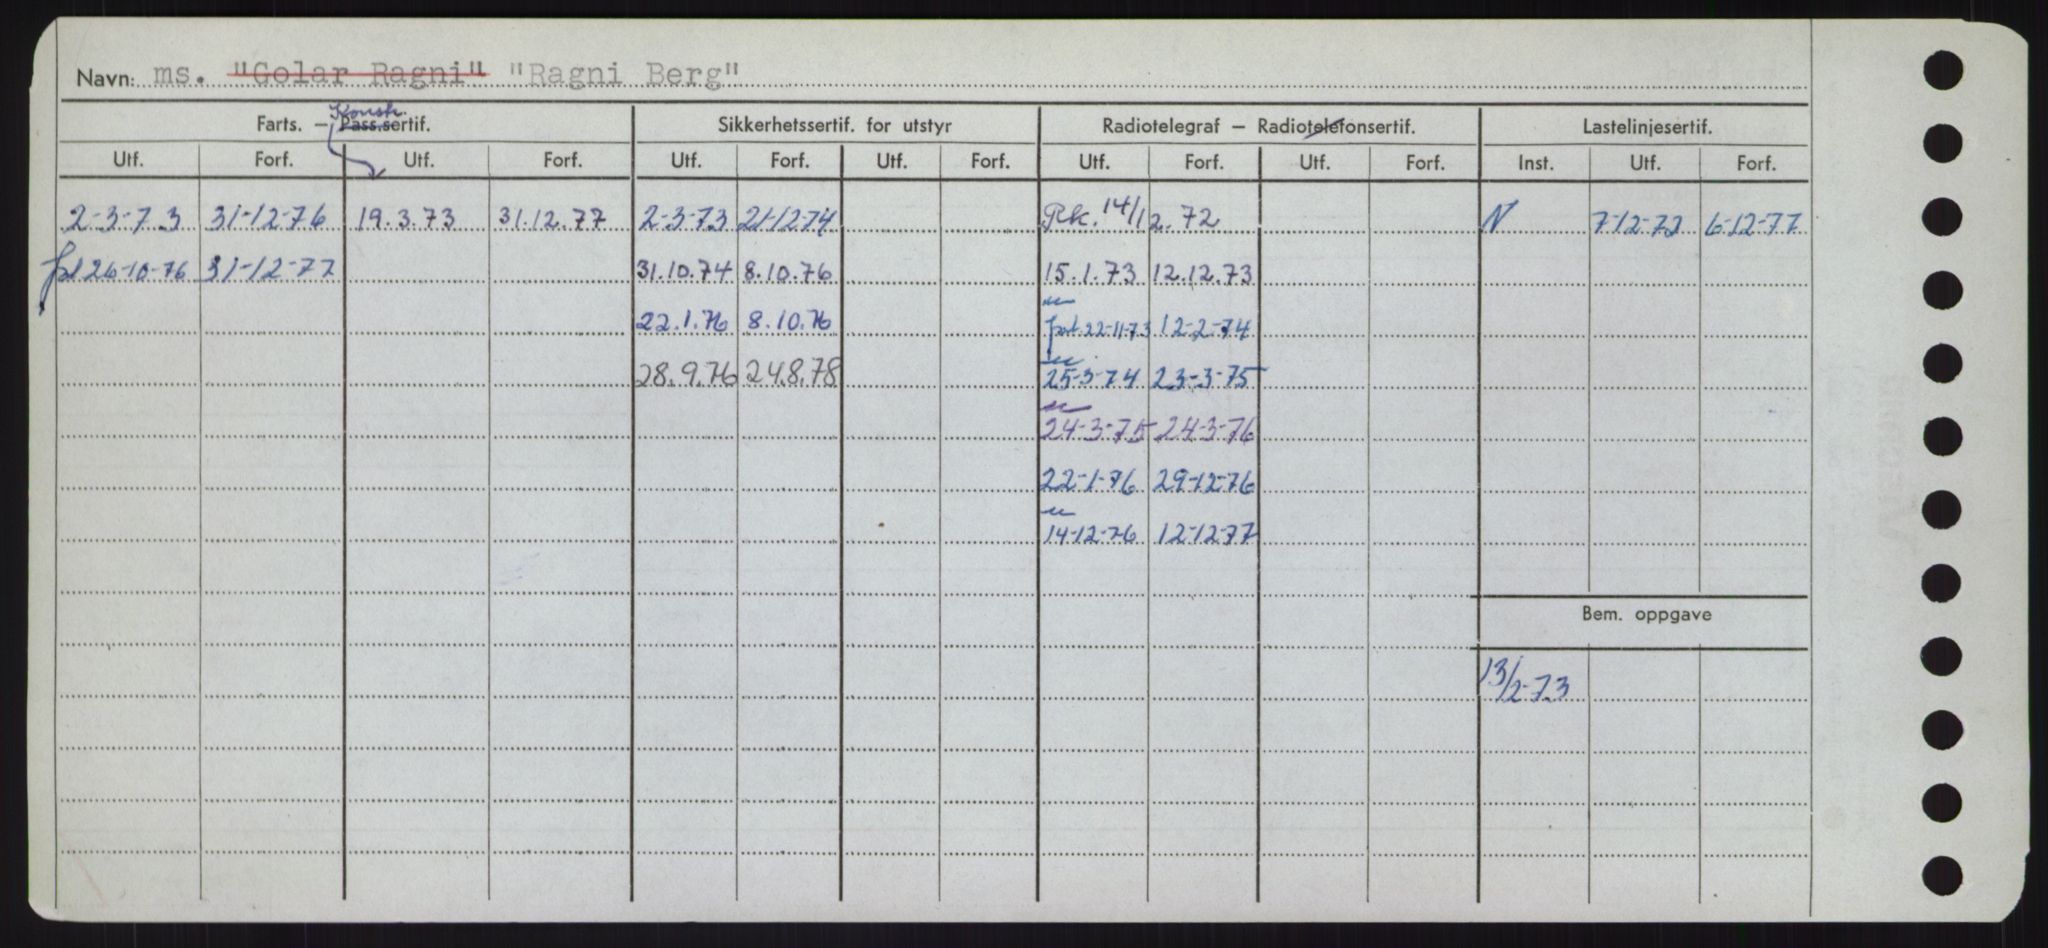 Navn: ms. "Golar Ragni" "Ragni Berg"
Konstr.
Farts. — Pass.sertif. Sikkerhetssertif. for utstyr Radiotelegraf — Radiotelefonsertif. Lastelinjesertif.
Utf. Forf. Utf. Forf. Utf. Forf. Utf. Forf. Utf. Forf. Utf. Forf. Inst. Utf. Forf.
2-3-73 31-12-76 19.3.73 31.12.77 2-3-73 21-12-74 Rk. 14/12.72 N 7-12-72 6-12-77
26-10-76 31-12-77 31.10.74 8.10.76 15.1.73 12.12.73
22.1.76 8.10.76 22-11-73 12-2-74
28.9.76 24.8.78 25-3-74 23-3-75
24-3-75 24-3-76
22-1-76 29-12-76
14-12-76 12-12-77
Bem. oppgave
13/2-73